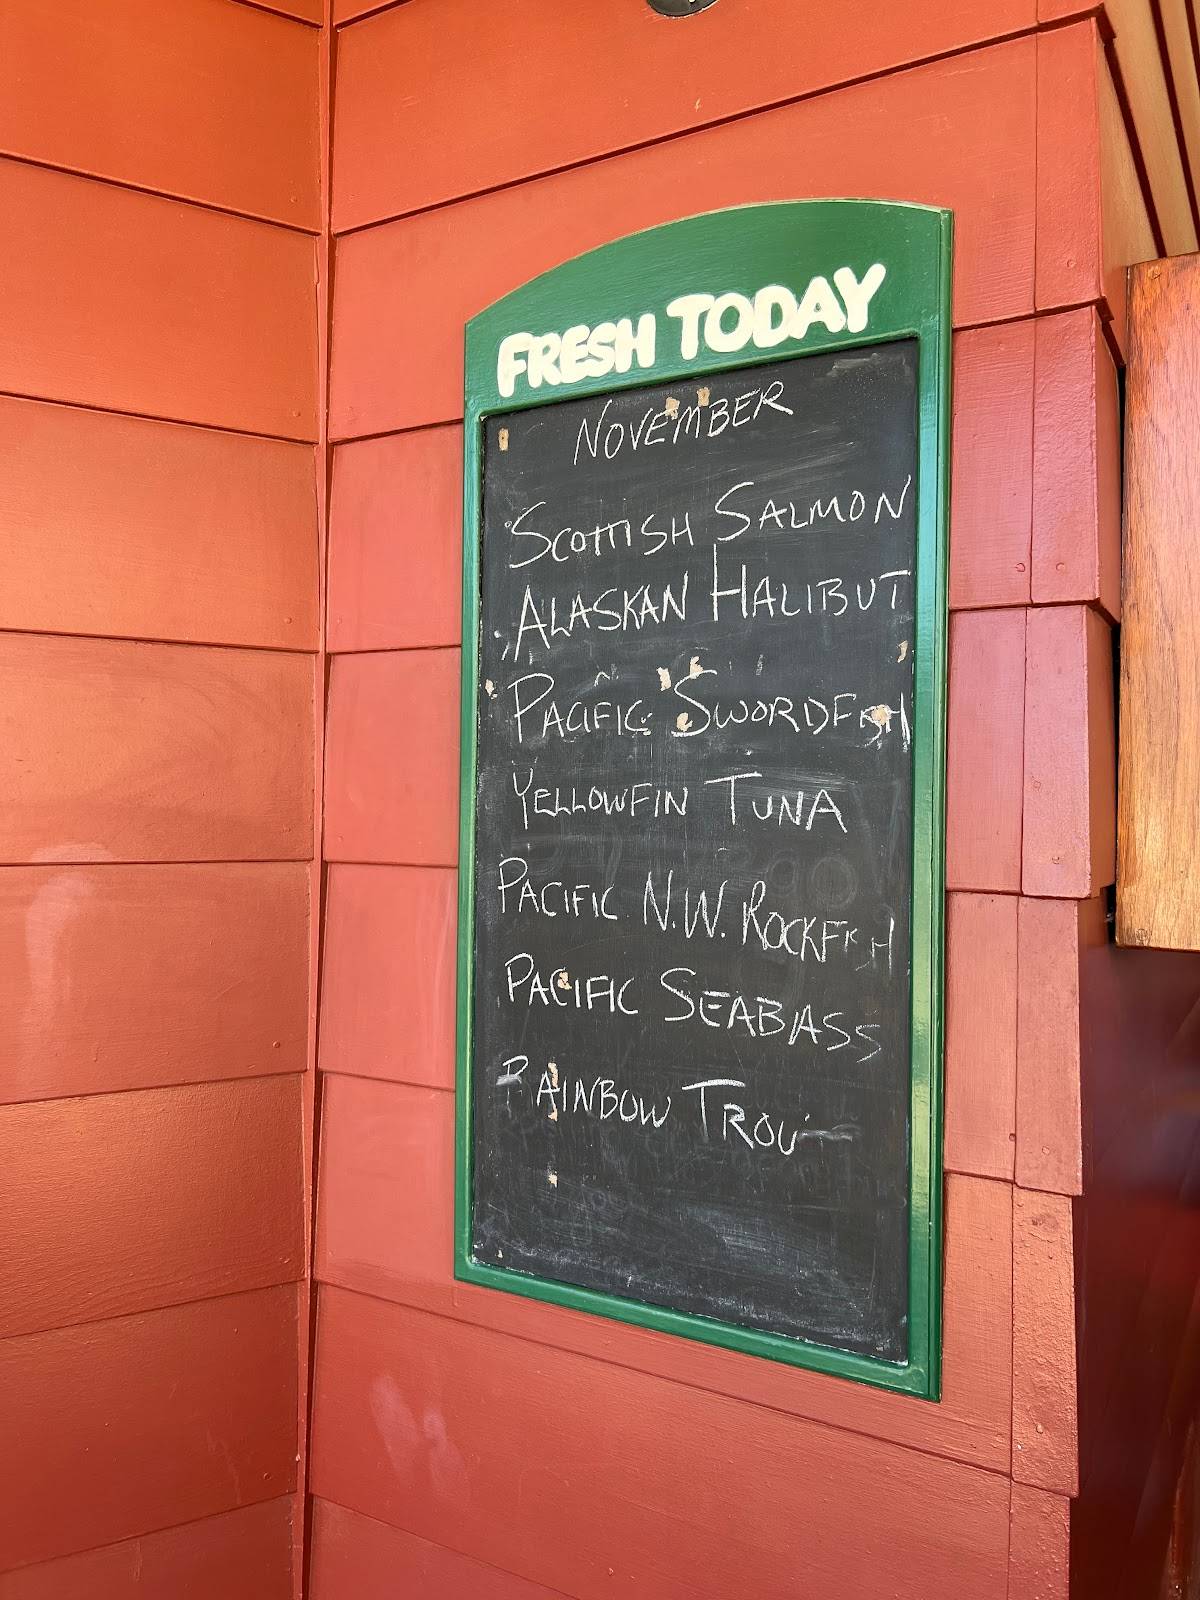 FRESH TODAY
NOVEMBER
SCOTTISH SALMON
ALASKAN HALIBUT
PACIFIC SWORDFISH
YELLOWFIN TUNA
PACIFIC N.W. ROCKFISH
PACIFIC SEABASS
RAINBOW TROUT